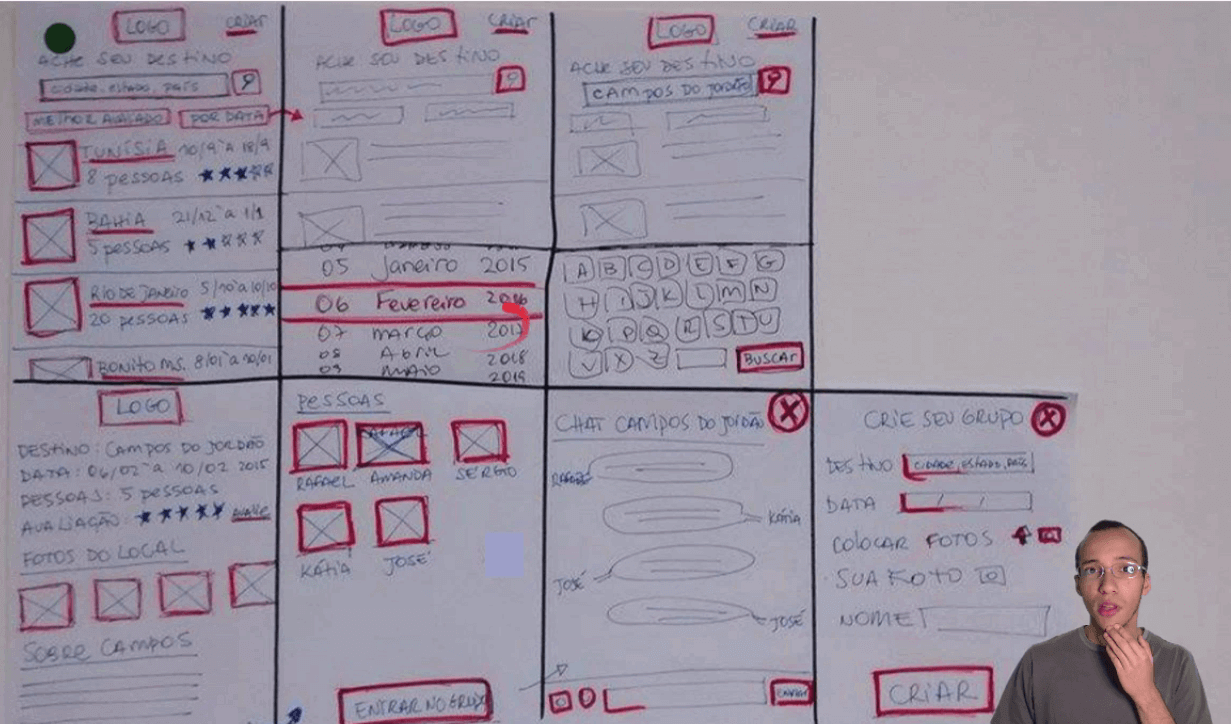 LOGO
CRIAR
ACHE SEU DESTINO
cidade, estado, país
MELHOR AVALIADO
POR DATA
TUNÍSIA 10/9 a 18/9
8 pessoas
BAHIA 21/12 a 1/1
5 pessoas
RIO DE JANEIRO 5/10 a 10/10
20 pessoas
BONITO MS. 8/01 a 20/01
LOGO
CRIAR
ACHE SEU DESTINO
05 Janeiro 2015
06 Fevereiro 2016
07 março 2017
08 Abril 2018
09 MAIO 2019
LOGO
CRIAR
ACHE SEU DESTINO
CAMPOS DO JORDÃO
A B C D E F G
H I J K L M N
O P Q R S T U
V X Z
BUSCAR
LOGO
DESTINO: CAMPOS DO JORDÃO
DATA: 06/02 a 10/02 2015
PESSOAS: 5 pessoas
AVALIAÇÃO: AVALIE
FOTOS DO LOCAL
SOBRE CAMPOS
PESSOAS
RAFAEL AMANDA SERGIO
KÁTIA JOSÉ
ENTRAR NO GRUPO
CHAT CAMPOS DO JORDÃO X
RAFAEL
KÁTIA
JOSÉ
JOSÉ
ENVIAR
CRIE SEU GRUPO X
DESTINO cidade, estado, país
DATA / /
COLOCAR FOTOS
SUA FOTO
NOME
CRIAR